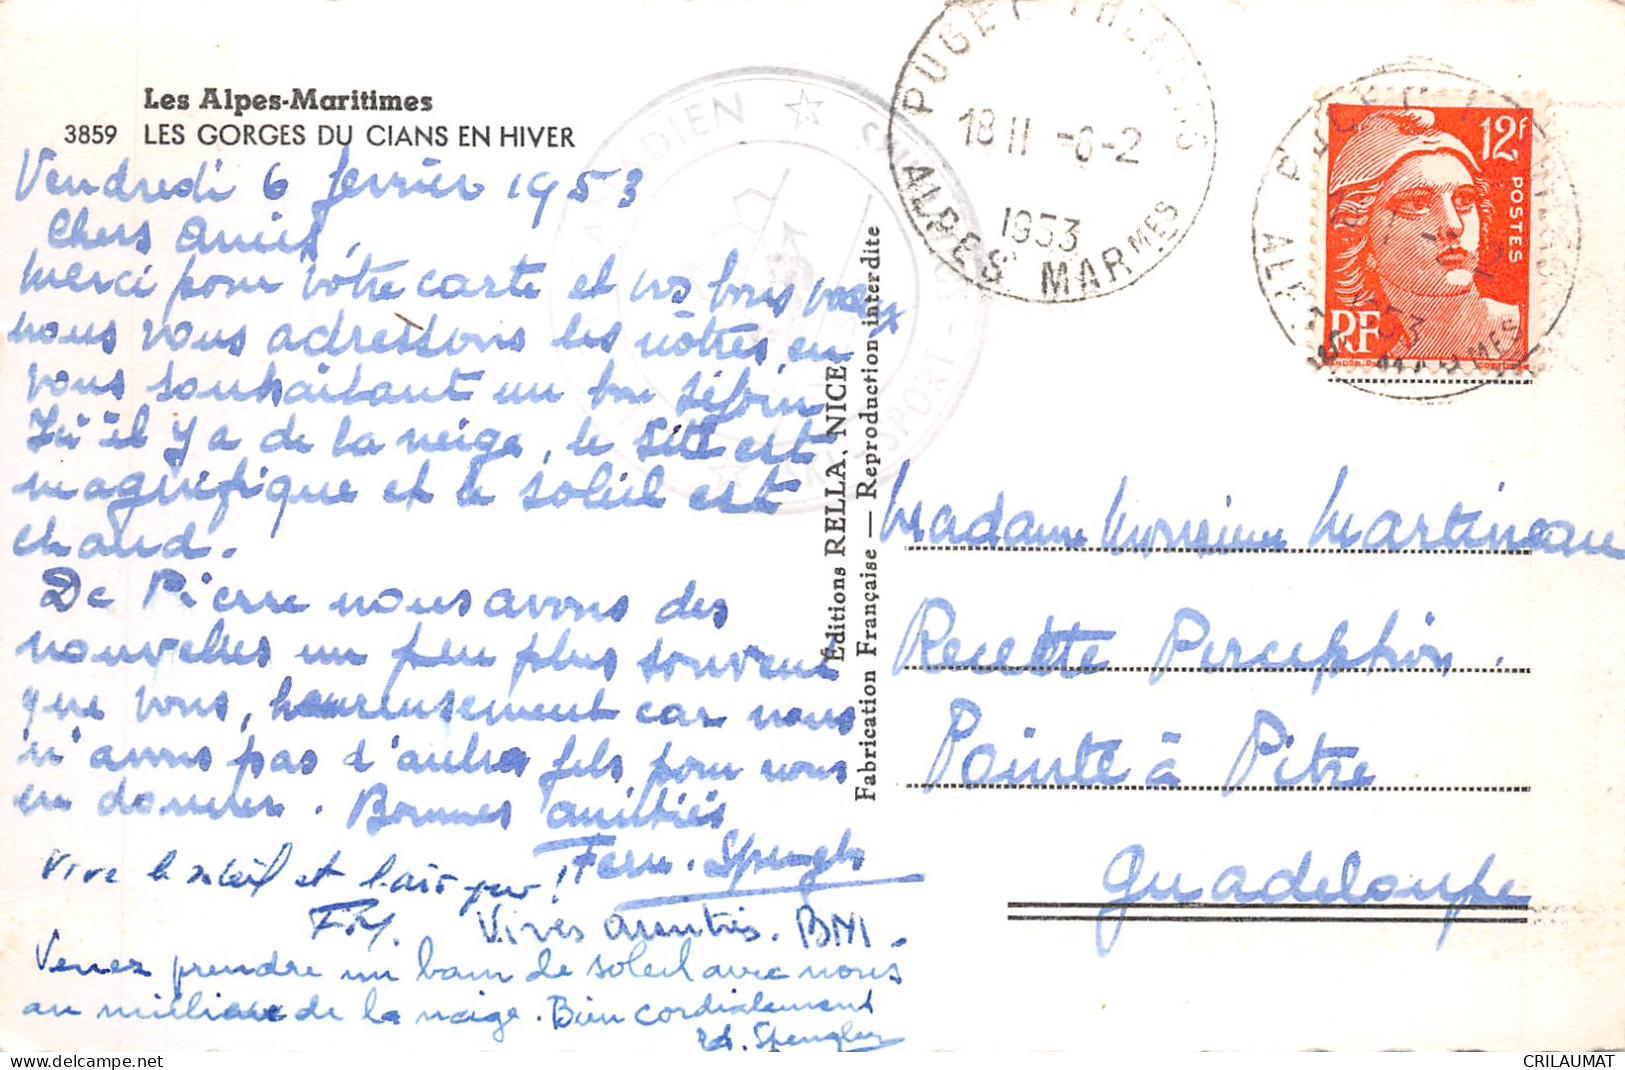 Les Alpes-Maritimes
3859 LES GORGES DU CIANS EN HIVER
Vendredi 6 février 1953
Chers Amis,
Merci pour votre carte et vos bons voeux
nous vous adressons les nôtres, en
vous souhaitant un bon séjour
Ici il y a de la neige, le site est
magnifique et le soleil est
chaud.
De Pierre nous avons des
nouvelles un peu plus souvent
que vous, heureusement car nous
n'avons pas d'autres fils pour nous
en donner. Bonnes amitiés
Fern. Spengler
Vive le soleil et l'air pur!
Vives amitiés. BM.
Venez prendre un bain de soleil avec nous
au milieu de la neige. Bien cordialement
Spengler
Editions RELLA, NICE
Fabrication Française — Reproduction interdite
PUGET THENIERS
18 H -6-2
1953
ALPES MARMES
12F
POSTES
RF
Madame Monsieur Martineau
Recette Perception.
Pointe à Pitre
Guadeloupe
CRILAUMAT